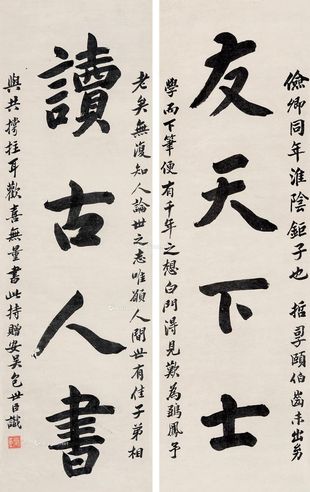 儉卿同年淮陰鉅子也哲孠頤伯齒未出幼
友天下士
學而下筆便有千年之想白門得見歎為鵷鳳予
老矣無復知人論世之志唯願人間世有佳子弟相
讀古人書
與共撐拄耳歡喜無量書此持贈安吳包世臣識